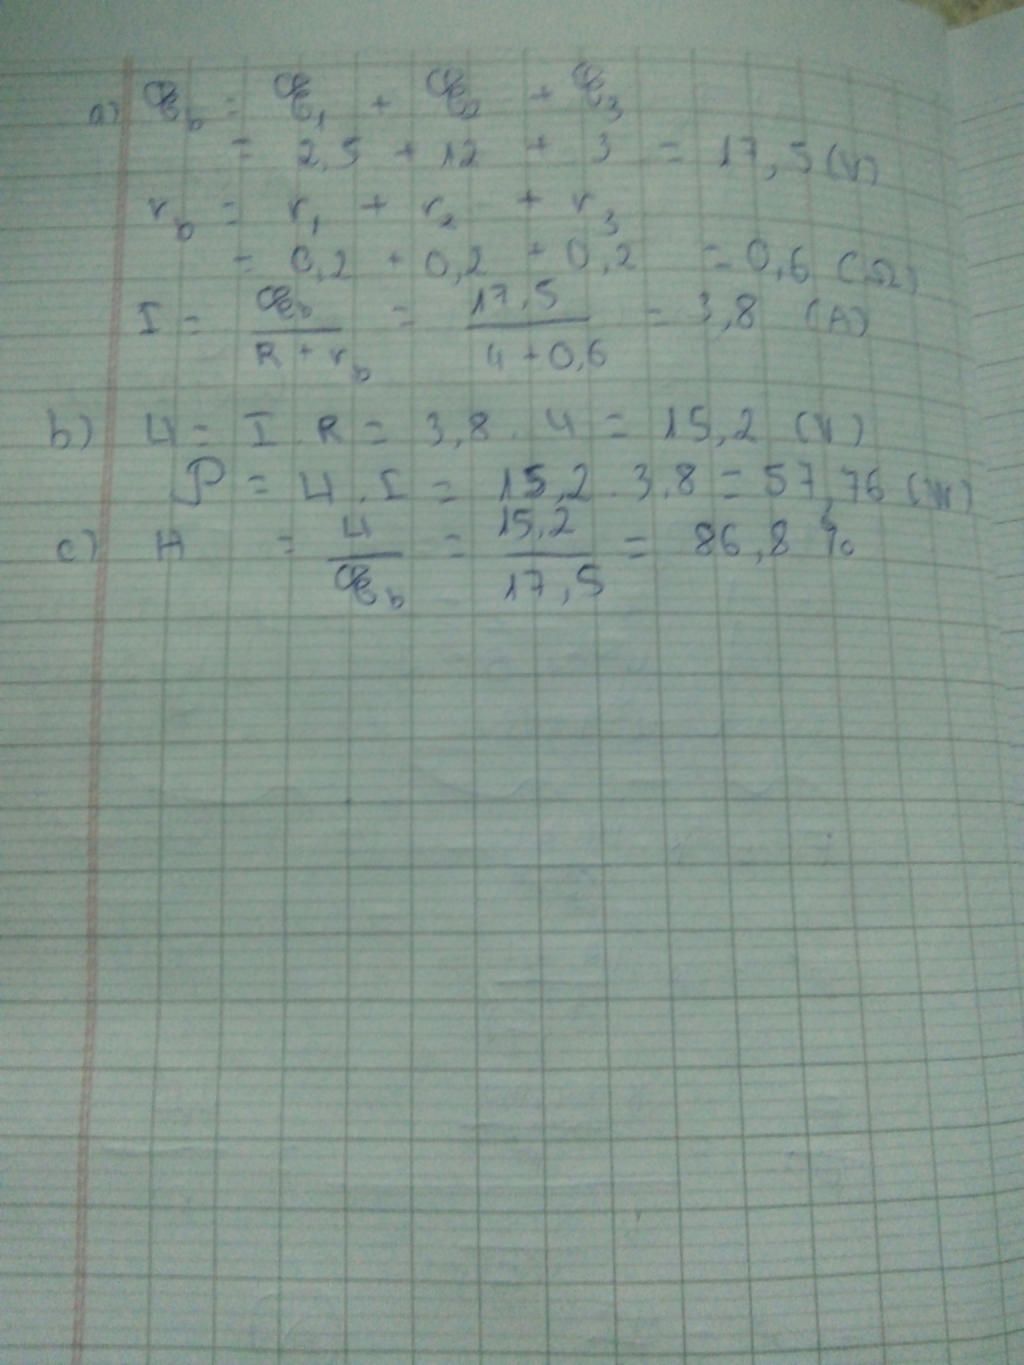 a) ℰb = ℰ1 + ℰ2 + ℰ3
= 2,5 + 12 + 3 = 17,5 (V)
rb = r1 + r2 + r3
= 0,2 + 0,2 + 0,2 = 0,6 (Ω)
I = ℰb / (R + rb) = 17,5 / (4 + 0,6) = 3,8 (A)
b) U = I . R = 3,8 . 4 = 15,2 (V)
P = U . I = 15,2 . 3,8 = 57,76 (W)
c) H = U / ℰb = 15,2 / 17,5 = 86,8 %